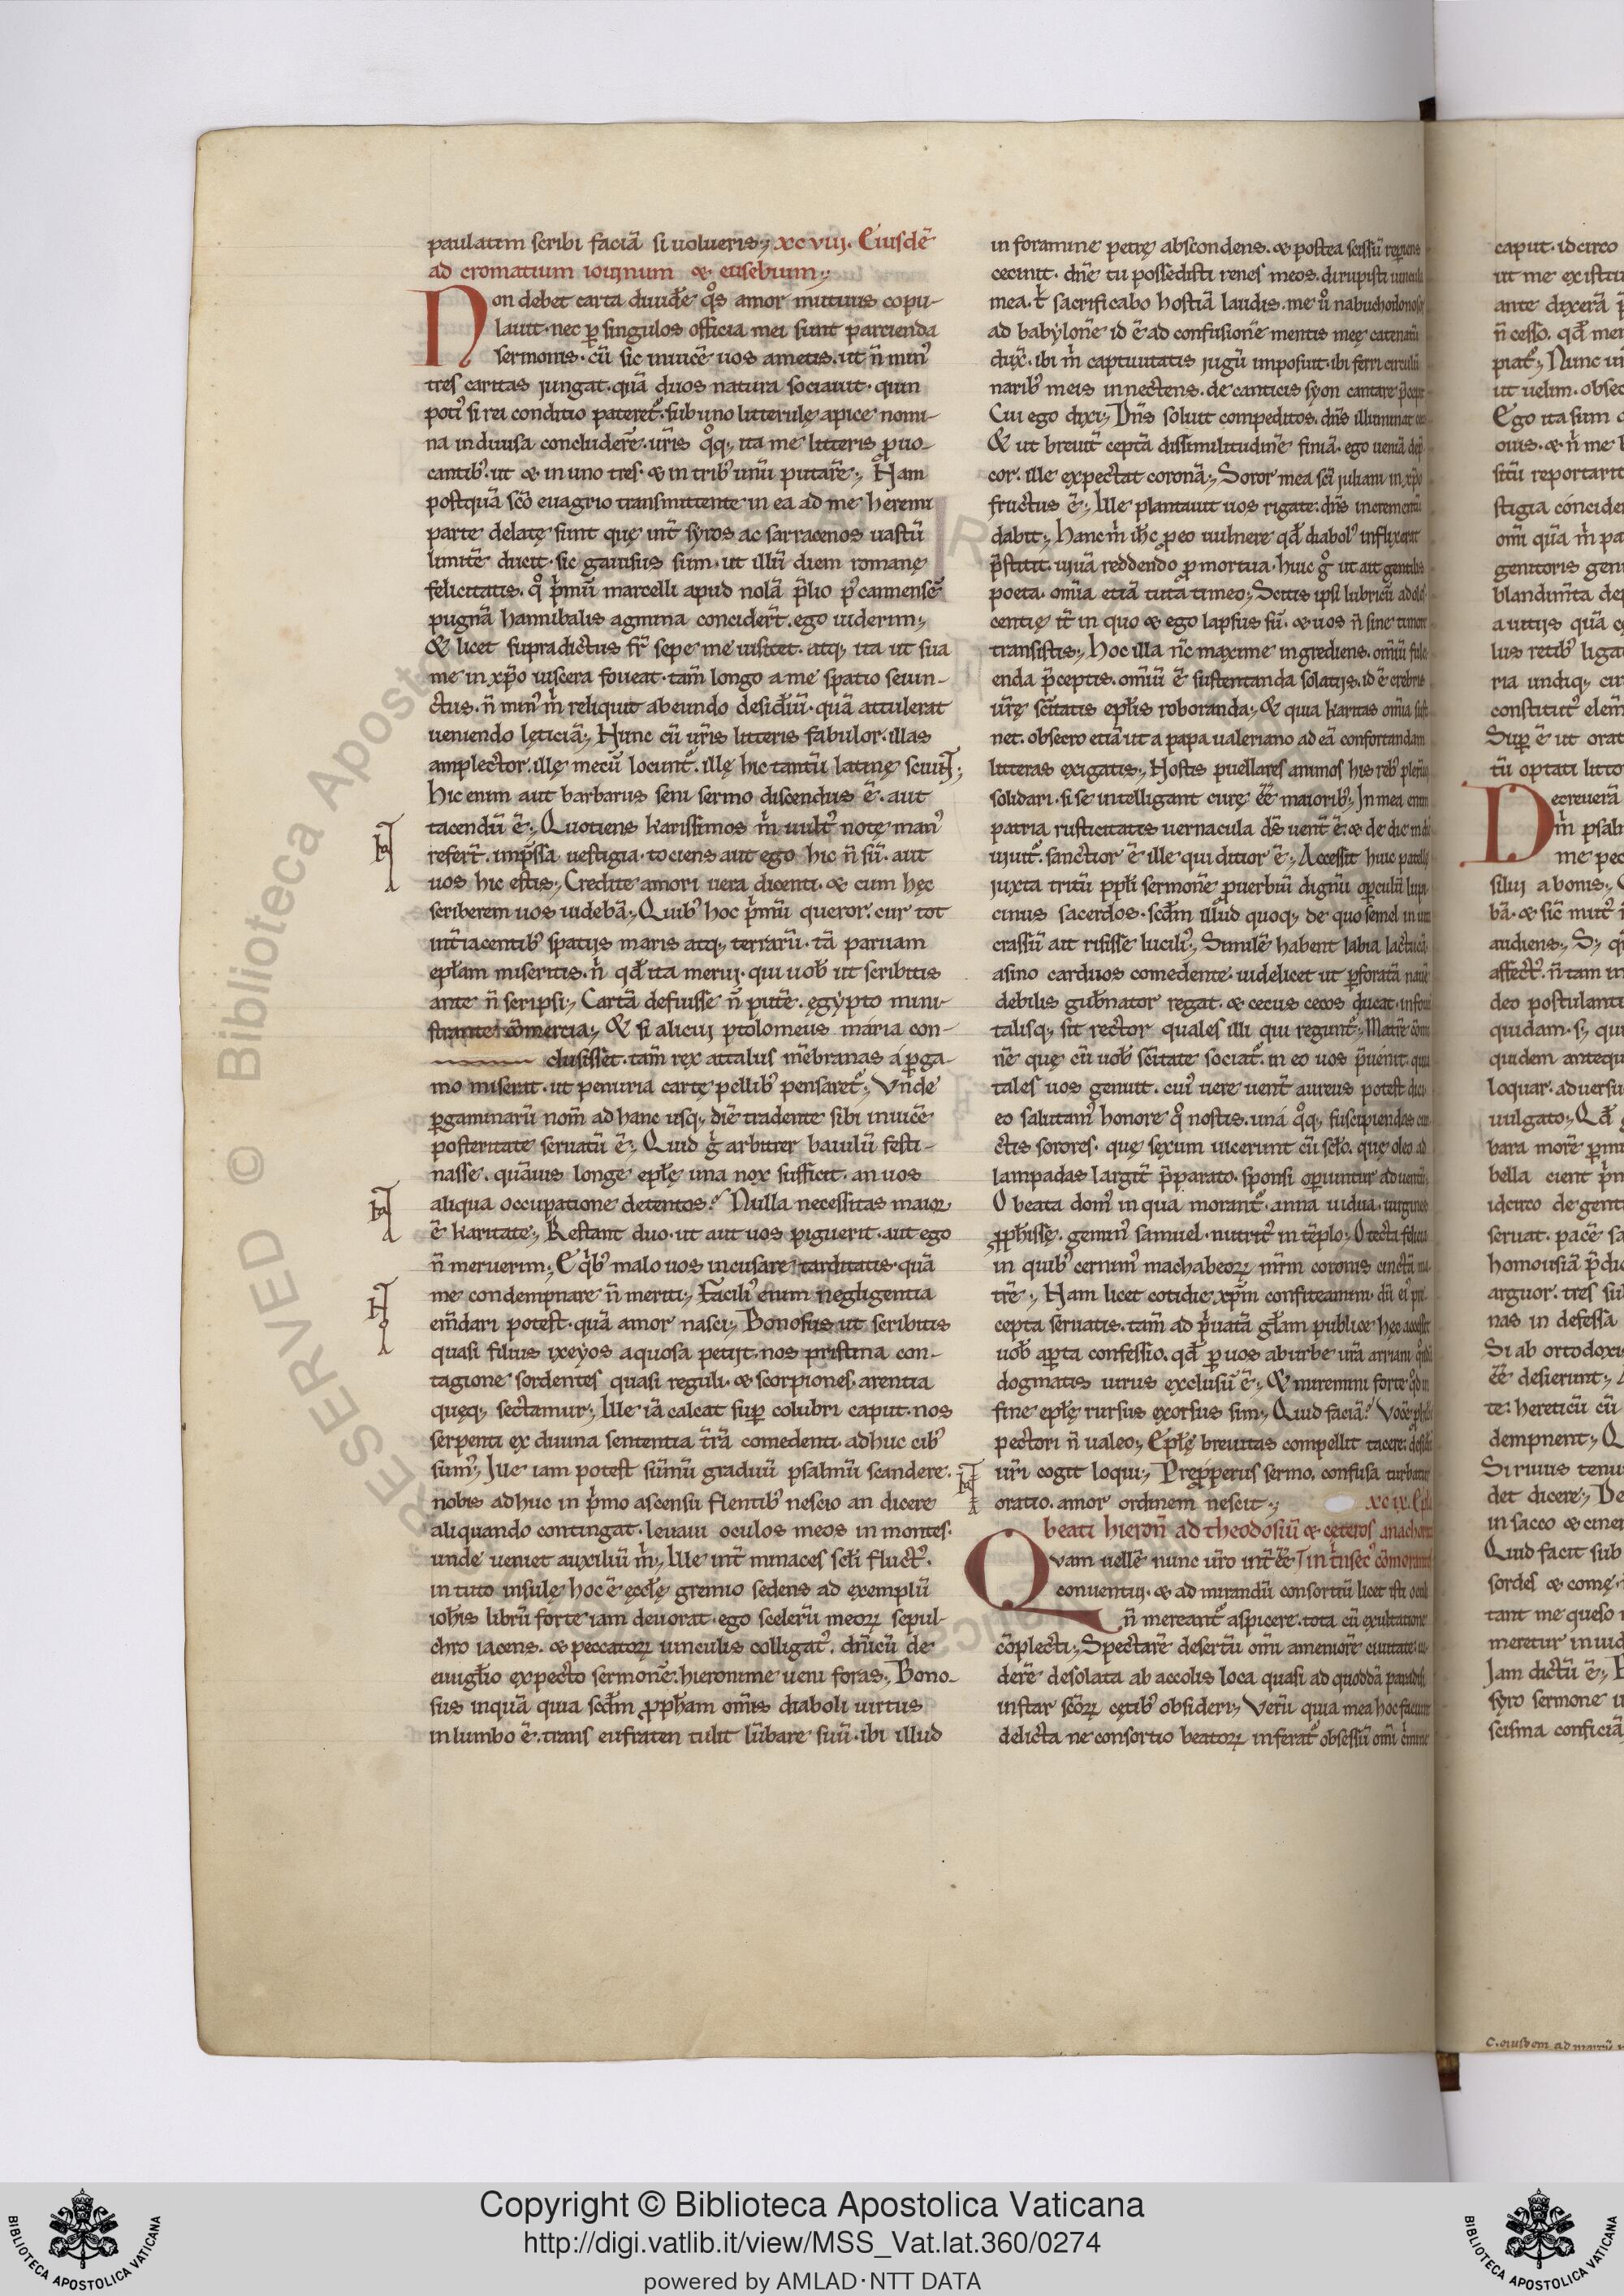 paulatim scribi faciā si uolueris; xcviij. Eiusdē
ad cromatium iouinum & eusebium;
Non debet carta diuidere q̊s amor mutuus copu-
lauit. nec ꝑ singulos officia mei sunt parcienda
sermonis. cū sic inuicē uos ametis. ut n̄ minꝰ
tres caritas jungat. quā duos natura sociauit. quin
potiꝰ si rei conditio pateret᷑. sub uno litterulę apice nomi-
na indiuisa concluderē. ur̄is q̊q; ita me litteris ꝓuo-
cantibꝰ. ut & in uno tres. & in tribꝰ unū putarē; Nam
postquā sc̄o euagrio transmittente in ea ad me heremi
parte delatę sunt quę int̄ syros ac sarracenos uastū
limitē ducit. sic gauisus sum. ut illū diem romanę
felicitatis. q̊ p̓mū marcelli apud nolā p̄lio pꝰ cannensē
pugnā hannibalis agmina concider̄t. ego uiderim;
& licet supradictus fr̄ sepe me uisitet. atq; ita ut sua
me in xp̄o uiscera foueat. tam̄ longo a me spatio seiun-
ctus. n̄ minꝰ m̓ reliquit abeundo desid̓iū. quā attulerat
ueniendo lęticiā; Nunc cū ur̄is litteris fabulor. illas
amplector. illę mecū locunt᷑. illę hic tantū latinę sciunt;
hic enim aut barbarus seni sermo discendus ē. aut
tacendū ē; Quotiens karissimos m̓ uultꝰ notę manꝰ
refert̄. imp̄ssa uestigia. tociens aut ego hic n̄ sū. aut
uos hic estis; Credite amori uera dicenti. & cum hęc
scriberem uos uidebā; Quibꝰ hoc p̓mū queror. cur tot
int̄iacentibꝰ spatijs maris atq; terrarū. tā paruam
epl̄am miseritis. n̓ qd̄ ita meruj. qui uob̄ ut scribitis
ante n̄ scripsi; Cartā defuisse n̄ putē. ęgypto mini-
strante cōmercia; & si alicuj ptolomeus maria con-
clusisset. tam̄ rex attalus mēbranas a ꝑga-
mo miserat. ut penuria cartę pellibꝰ pensaret᷑; Vnde
ꝑgaminarū nom̄ ad hanc usq; diē tradente sibi inuicē
posteritate seruatū ē; Quid g̓ arbitrer baiulū festi-
nasse. quāuis longe epl̄ę una nox sufficit. an uos
aliqua occupatione detentos? Nulla necessitas maioꝝ
ē karitate; Restant duo. ut aut uos piguerit. aut ego
n̄ meruerim; E q̓bꝰ malo uos incusare tarditatis. quā
me condempnare n̄ meriti; Faciliꝰ enim negligentia
em̄dari potest. quā amor nasci; Bonosus ut scribitis
quasi filius ixeyos aquosa petijt. nos pristina con-
tagione sordentes quasi reguli. & scorpiones. arentia
quęq; sectamur; Ille iā calcat suꝑ colubri caput. nos
serpenti ex diuina sententia t̄rā comedenti. adhuc cibꝰ
sumꝰ; Ille iam potest sūmū graduū psalmū scandere.
nobis adhuc in p̓mo ascensu flentibꝰ nescio an dicere
aliquando contingat. leuaui oculos meos in montes.
unde ueniet auxiliū m̓; Ille int̄ minaces scl̄i fluctꝰ.
in tuto insulę hoc ē ęccl̄ę gremio sedens ad exemplū
ioh̄is librū forte iam deuorat. ego scelerū meoꝝ sepul-
chro iacens. & peccatoꝝ uinculis colligatꝰ. dn̄icū de
euuigl̄io expecto sermonē. hieronime ueni foras; Bono-
sus inquā quia scd̄m ꝓph̄am om̄is diaboli uirtus
in lumbo ē. trans eufraten tulit lūbare suū. ibi illud
in foramine petrę abscondens. & postea scissū reꝑiens
cecinit. dn̄e tu possedisti renes meos. dirupisti uincula
mea. t̓ sacrificabo hostiā laudis. me ū nabuchodonosor
ad babylonē id ē ad confusionē mentis meę catenatū
dux̄. ibi m̓ captiuitatis jugū imposuit. ibi ferri circulū
naribꝰ meis innectens. de canticis syon cantare p̄cepit
Cui ego dixi; Dn̄s soluit compeditos. dn̄s illuminat cecos
& ut breuit̄ ceptā dissimilitudinē finiā. ego ueniā dep̄
cor. ille expectat coronā; Soror mea sc̄i juliani in xp̄o
fructus ē; Ille plantauit uos rigate. dn̄s incrementū
dabit; Hanc m̓ ih̄c ꝓ eo uulnere qd̄ diabolꝰ inflixerat
p̄stitit. uiuā reddendo ꝓ mortua. huic g̊ ut ait gentilis
poeta. om̄ia etiā tuta timeo; Scitis ipsi lubricū adoles
centię it̄ in quo & ego lapsus sū. & uos n̄ sine timore
transistis; Hoc illa nc̄ maxime ingrediens. om̄iū fulci
enda p̄ceptis. om̄iū ē sustentanda solatijs. id ē crebris
ur̄ę sc̄itatis epl̄is roboranda; & quia karitas om̄ia susti
net. obsecro etiā ut a papa ualeriano ad eā confortandam
litteras exigatis; Nostis puellares animos his rebꝰ plerūq;
solidari. si se intelligant curę ēē maioribꝰ; In mea enim
patria rusticitatis uernacula ds̄ uent̄ ē. & de die in diē
uiuit᷑. sanctior ē ille qui ditior ē; Accessit huic patellę
juxta tritū ppl̄i sermonē ꝓuerbiū dignū oꝑculū lupi
cinus sacerdos. scd̄m illud quoq; de quo semel in uita
crassū ait risisse luciliꝰ; Similē habent labia lactucā
asino carduos comedente. uidelicet ut ꝑforatā nauē
debilis gub̄nator regat. & cecus cecos ducat. in foueā
talisq; sit rector quales illi qui regunt᷑; Matrē cōm
nē quę cū uob̄ sc̄itate sociat᷑. in eo uos p̄uenit. quia
tales uos genuit. cuiꝰ uere uent̄ aureus potest dici.
eo salutamꝰ honore q̊ nostis. una q̊q; suscipiendas cun
ctis sorores. quę sexum uicerunt cū scl̄o. quę oleo ad
lampadas largit̄ p̄parato. sponsi oꝑiuntur aduentū;
O beata domꝰ in qua morant᷑. anna uidua. uirgines
ꝓph̄issę. geminꝰ samuel. nutritꝰ in tēplo; O tecta felicia
in quibꝰ cernimꝰ machabeoꝝ mr̄m coronis cinctā ma
tr̄e; Nam licet cotidie xp̄m confiteamini. dū eiꝰ pre
cepta seruatis. tam̄ ad p̓uatā gl̄am publice hęc accessit
uob̄ aꝑta confessio. qd̄ ꝑ uos ab urbe ur̄a arriani quōdā
dogmatis uirus exclusū ē; & miremini forte qd̄ in
fine epl̄ę rursus exorsus sim; Quid faciā? Vocē
pectori n̄ ualeo; Epl̄ę breuitas compellit tacere. desidiū
ur̄i cogit loqui; Pręꝓperus sermo. confusa turbatur
oratio. amor ordinem nescit; xcix. Epl̄a
beati hieron̄ ad theodosiū & ceteros anachori
Quam uellē nunc ur̄o int̄ēē
conuentuj. & ad mirandū consortiū licet isti oculi
n̄ mereant᷑ aspicere. tota cū exultatione
cōplecti; Spectarē desertū om̄i ameniorē ciuitate. ui-
derē desolata ab accolis loca quasi ad quoddā paradisi
instar sc̄oꝝ cętibꝰ obsideri; Verū quia mea hoc faciunt
delicta ne consortio beatoꝝ inserat᷑ obsessū om̄i c̓mine
caput. idcirco
ut me existim
ante dixerā
n̄ cesso. qd̄ me
piat᷑; Nunc
ut uelim. obsec
Ego ita sum
ouis. & n̄ me
stū reportarit
stigia concide
om̄i quā m̓ pa
genitoris gem
blandim̄ta de
auitijs quā
lus retibꝰ liga
ria undiq; cir
constitutꝰ elem̄
Suꝑ ē ut orat
tū optati litto
Decreuerā
m̓ psal
me pec
siluj a bonis;
bā. & sic mutꝰ
audiens; S;
affectꝰ. n̄ tam in
deo postulanti
quidam. s; qui
quidem antequ
loquar. aduersu
uulgato; Qd̄
bara morē ꝑmi
bella cient p̓m
idcirco de gent
seruat. pacē sa
homousiā p̄dic
arguor. tres su
nas in defessa
Si ab ortodoxis
ēē desierunt;
te. hereticū cū
dempnent; Q
Si riuus tenui
det dicere; De
in sacco & cine
Quid facit sub
sordes & comę
tant me queso
meretur inuid
Jam dictū ē;
syro sermone
scisma conficiā
C. eiusdem ad
RESERVED © Biblioteca Apostolica Vaticana
Copyright © Biblioteca Apostolica Vaticana
http://digi.vatlib.it/view/MSS_Vat.lat.360/0274
powered by AMLAD·NTT DATA
BIBLIOTECA APOSTOLICA VATICANA
BIBLIOTECA APOSTOLICA VATICANA